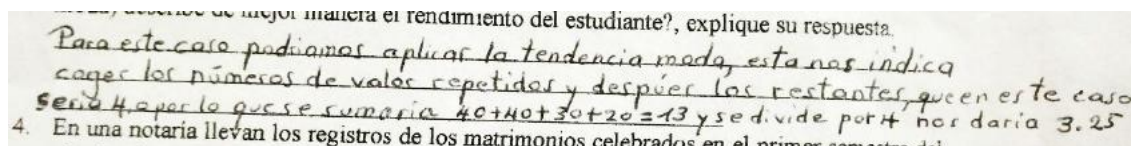 describe de mejor manera el rendimiento del estudiante?, explique su respuesta.
Para este caso podriamos aplicar la tendencia moda, esta nos indica
coger los números de valor repetidos y despúes los restantes, que en este caso
seria 4, por lo que se sumaria 40+40+30+20=13 y se divide por 4 nos daria 3.25
4. En una notaría llevan los registros de los matrimonios celebrados en el primer